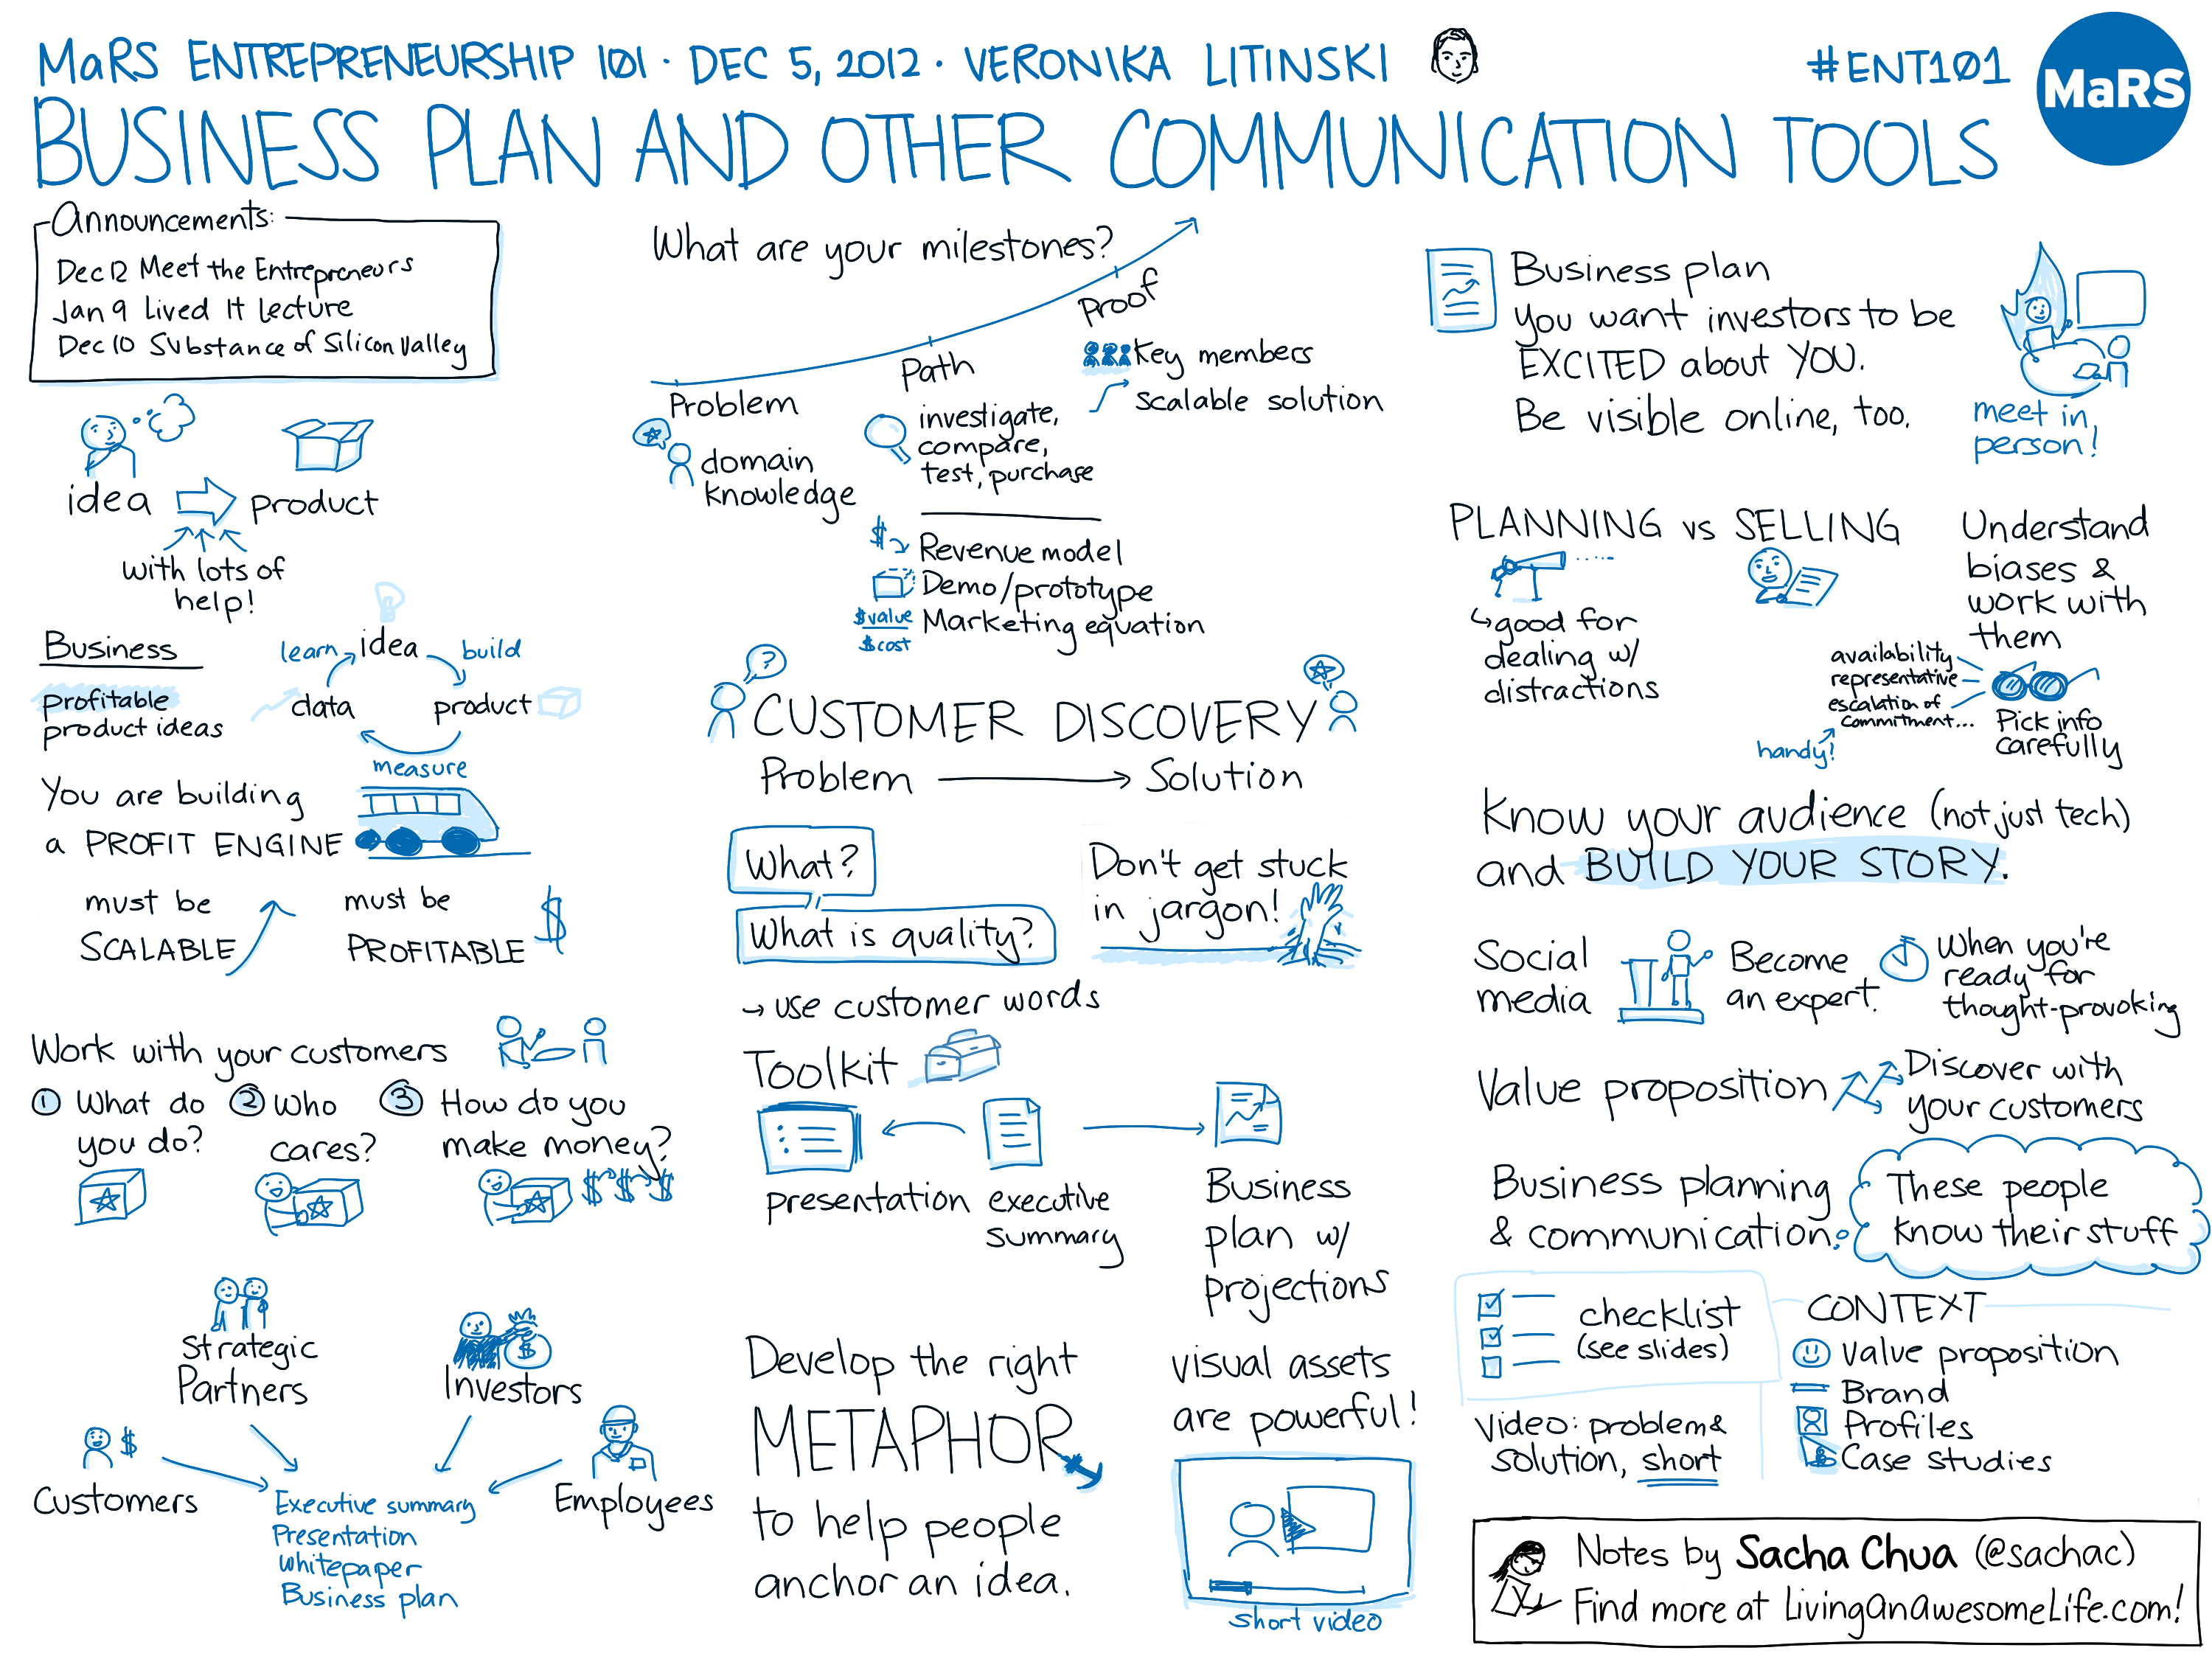 MaRS ENTREPRENEURSHIP 101 · DEC 5, 2012 · VERONIKA LITINSKI
#ENT101
MaRS
BUSINESS PLAN AND OTHER COMMUNICATION TOOLS
Announcements:
Dec 12 Meet the Entrepreneurs
Jan 9 Lived It lecture
Dec 10 Substance of Silicon Valley
idea
product
with lots of
help!
Business
Profitable
product ideas
learn
idea
build
data
product
measure
You are building
a PROFIT ENGINE
must be
SCALABLE
must be
PROFITABLE
$
Work with your customers
1 What do
you do?
2 Who
cares?
3 How do you
make money?
$ $ $
Strategic
Partners
$
Investors
$
Customers
Employees
Executive summary
Presentation
Whitepaper
Business plan
What are your milestones?
Problem
domain
knowledge
Path
investigate,
compare,
test, purchase
$
Revenue model
Demo/prototype
$value
$cost
Marketing equation
Proof
Key members
Scalable solution
?
CUSTOMER DISCOVERY
Problem
Solution
What?
What is quality?
Don't get stuck
in jargon!
use customer words
Toolkit
presentation
executive
summary
Business
plan w/
projections
Develop the right
METAPHOR
to help people
anchor an idea.
visual assets
are powerful!
short video
Business plan
you want investors to be
EXCITED about YOU.
Be visible online, too.
meet in
person!
PLANNING vs SELLING
good for
dealing w/
distractions
Understand
biases &
work with
them
availability
representative
escalation of
commitment...
handy!
Pick info
carefully
Know your audience (not just tech)
and BUILD YOUR STORY.
Social
media
Become
an expert.
When you're
ready for
thought-provoking
Value proposition
Discover with
your customers
Business planning
& communication:
These people
know their stuff
checklist
(see slides)
Video: problem &
solution, short
CONTEXT
Value proposition
Brand
Profiles
Case studies
Notes by Sacha Chua (@sachac)
Find more at LivingAnAwesomeLife.com!